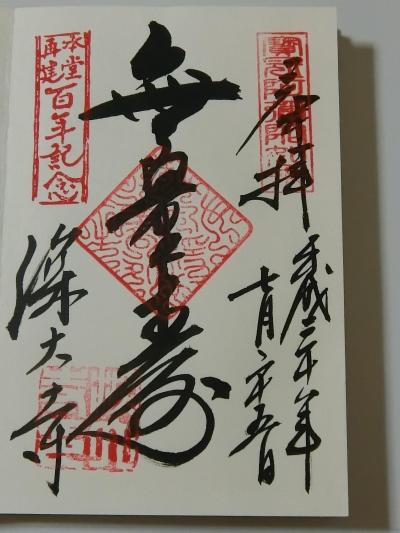 奉拝
平成三十年
七月二十五日
無量寿
本堂
再建
百年記念
深大寺